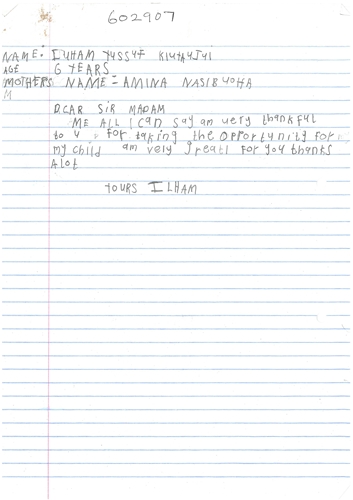 602907
NAME: ILHAM YUSSUF
AGE 6 YEARS
MOTHERS NAME = AMINA NASIBUOHA
M
DEAR SIR MADAM
ME ALL I can say am very thankful
to u for taking the opportunity for
my child am very greatl for you thanks
Alot
YOURS ILHAM